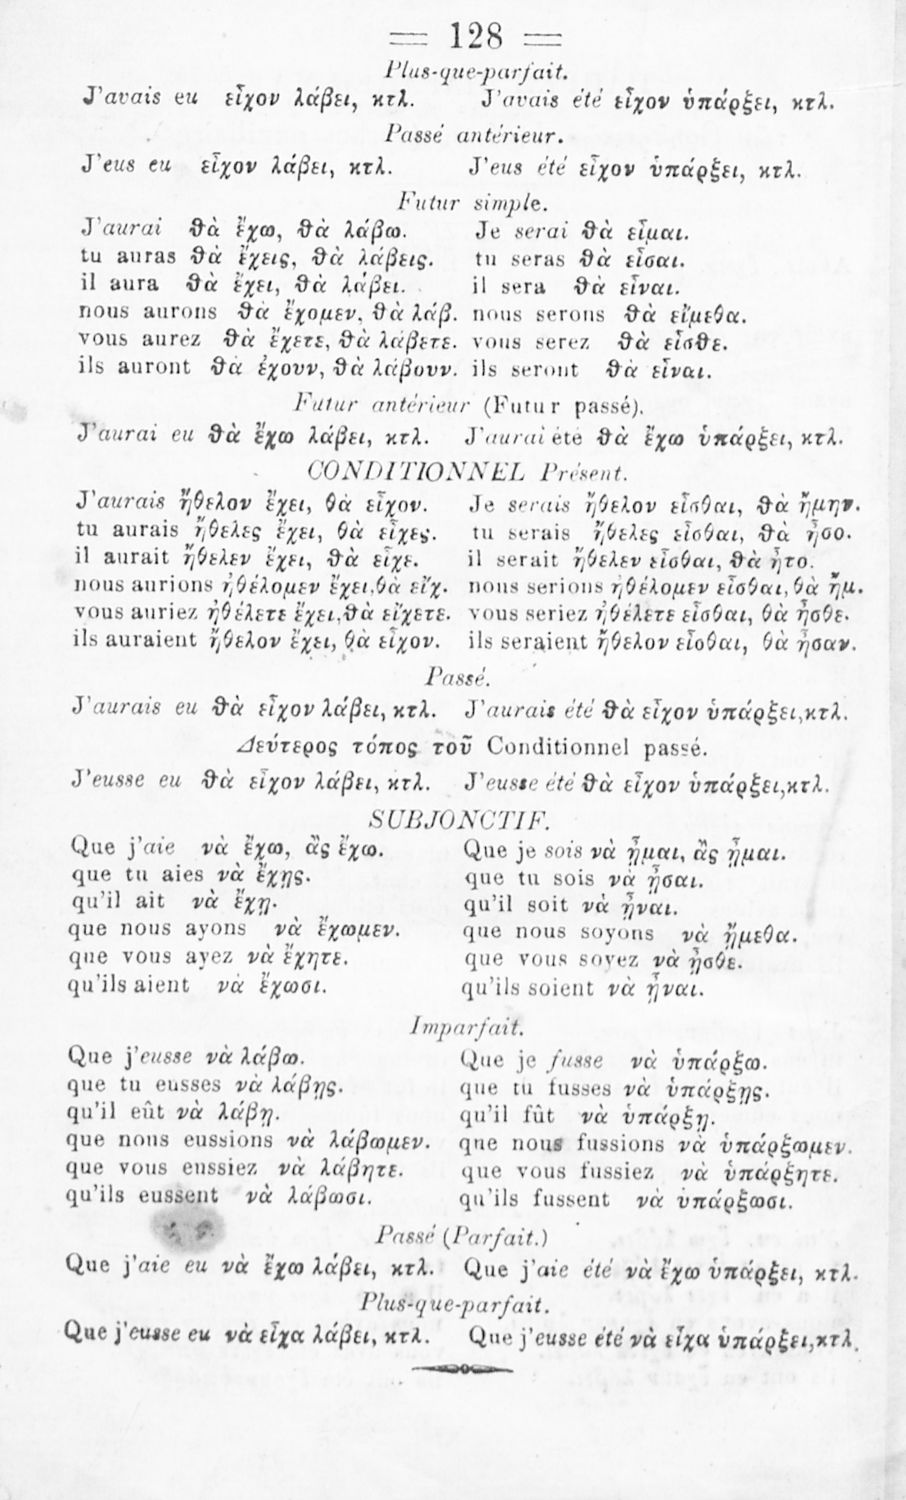 = 128 =
Plus-que-parfait.
J'avais eu εἶχον λάβει, κτλ. J'avais été εἶχον ὑπάρξει, κτλ.
Passé antérieur.
J'eus eu εἶχον λάβει, κτλ. J'eus été εἶχον ὑπάρξει, κτλ.
Futur simple.
J'aurai θὰ ἔχω, θὰ λάβω. Je serai θὰ εἶμαι.
tu auras θὰ ἔχεις, θὰ λάβεις. tu seras θὰ εἶσαι.
il aura θὰ ἔχει, θὰ λάβει. il sera θὰ εἶναι.
nous aurons θὰ ἔχομεν, θὰ λάβ. nous serons θὰ εἴμεθα.
vous aurez θὰ ἔχετε, θὰ λάβετε. vous serez θὰ εἶσθε.
ils auront θὰ ἔχουν, θὰ λάβουν. ils seront θὰ εἶναι.
Futur antérieur (Futur passé).
J'aurai eu θὰ ἔχω λάβει, κτλ. J'aurai été θὰ ἔχω ὑπάρξει, κτλ.
CONDITIONNEL Présent.
J'aurais ἤθελον ἔχει, θὰ εἶχον. Je serais ἤθελον εἶσθαι, θὰ ἤμην.
tu aurais ἤθελες ἔχει, θὰ εἶχες. tu serais ἤθελες εἶσθαι, θὰ ἦσο.
il aurait ἤθελεν ἔχει, θὰ εἶχε. il serait ἤθελεν εἶσθαι, θὰ ἦτο.
nous aurions ἠθέλομεν ἔχει, θὰ εἴχ. nous serions ἠθέλομεν εἶσθαι, θὰ ἤμ.
vous auriez ἠθέλετε ἔχει, θὰ εἴχετε. vous seriez ἠθέλετε εἶσθαι, θὰ ἦσθε.
ils auraient ἤθελον ἔχει, θὰ εἶχον. ils seraient ἤθελον εἶσθαι, θὰ ἦσαν.
Passé.
J'aurais eu θὰ εἶχον λάβει, κτλ. J'aurais été θὰ εἶχον ὑπάρξει, κτλ.
Δεύτερος τόπος τοῦ Conditionnel passé.
J'eusse eu θὰ εἶχον λάβει, κτλ. J'eusse été θὰ εἶχον ὑπάρξει, κτλ.
SUBJONCTIF.
Que j'aie νὰ ἔχω, ἂς ἔχω. Que je sois νὰ ἦμαι, ἂς ἦμαι.
que tu aies νὰ ἔχῃς. que tu sois νὰ ἦσαι.
qu'il ait νὰ ἔχῃ. qu'il soit νὰ ἦναι.
que nous ayons νὰ ἔχωμεν. que nous soyons νὰ ἤμεθα.
que vous ayez νὰ ἔχητε. que vous soyez νὰ ἦσθε.
qu'ils aient νὰ ἔχωσι. qu'ils soient νὰ ἦναι.
Imparfait.
Que j'eusse νὰ λάβω. Que je fusse νὰ ὑπάρξω.
que tu eusses νὰ λάβῃς. que tu fusses νὰ ὑπάρξῃς.
qu'il eût νὰ λάβῃ. qu'il fût νὰ ὑπάρξῃ.
que nous eussions νὰ λάβωμεν. que nous fussions νὰ ὑπάρξωμεν.
que vous eussiez νὰ λάβητε. que vous fussiez νὰ ὑπάρξητε.
qu'ils eussent νὰ λάβωσι. qu'ils fussent νὰ ὑπάρξωσι.
Passé (Parfait.)
Que j'aie eu νὰ ἔχω λάβει, κτλ. Que j'aie été νὰ ἔχω ὑπάρξει, κτλ.
Plus-que-parfait.
Que j'eusse eu νὰ εἶχα λάβει, κτλ. Que j'eusse été νὰ εἶχα ὑπάρξει, κτλ.